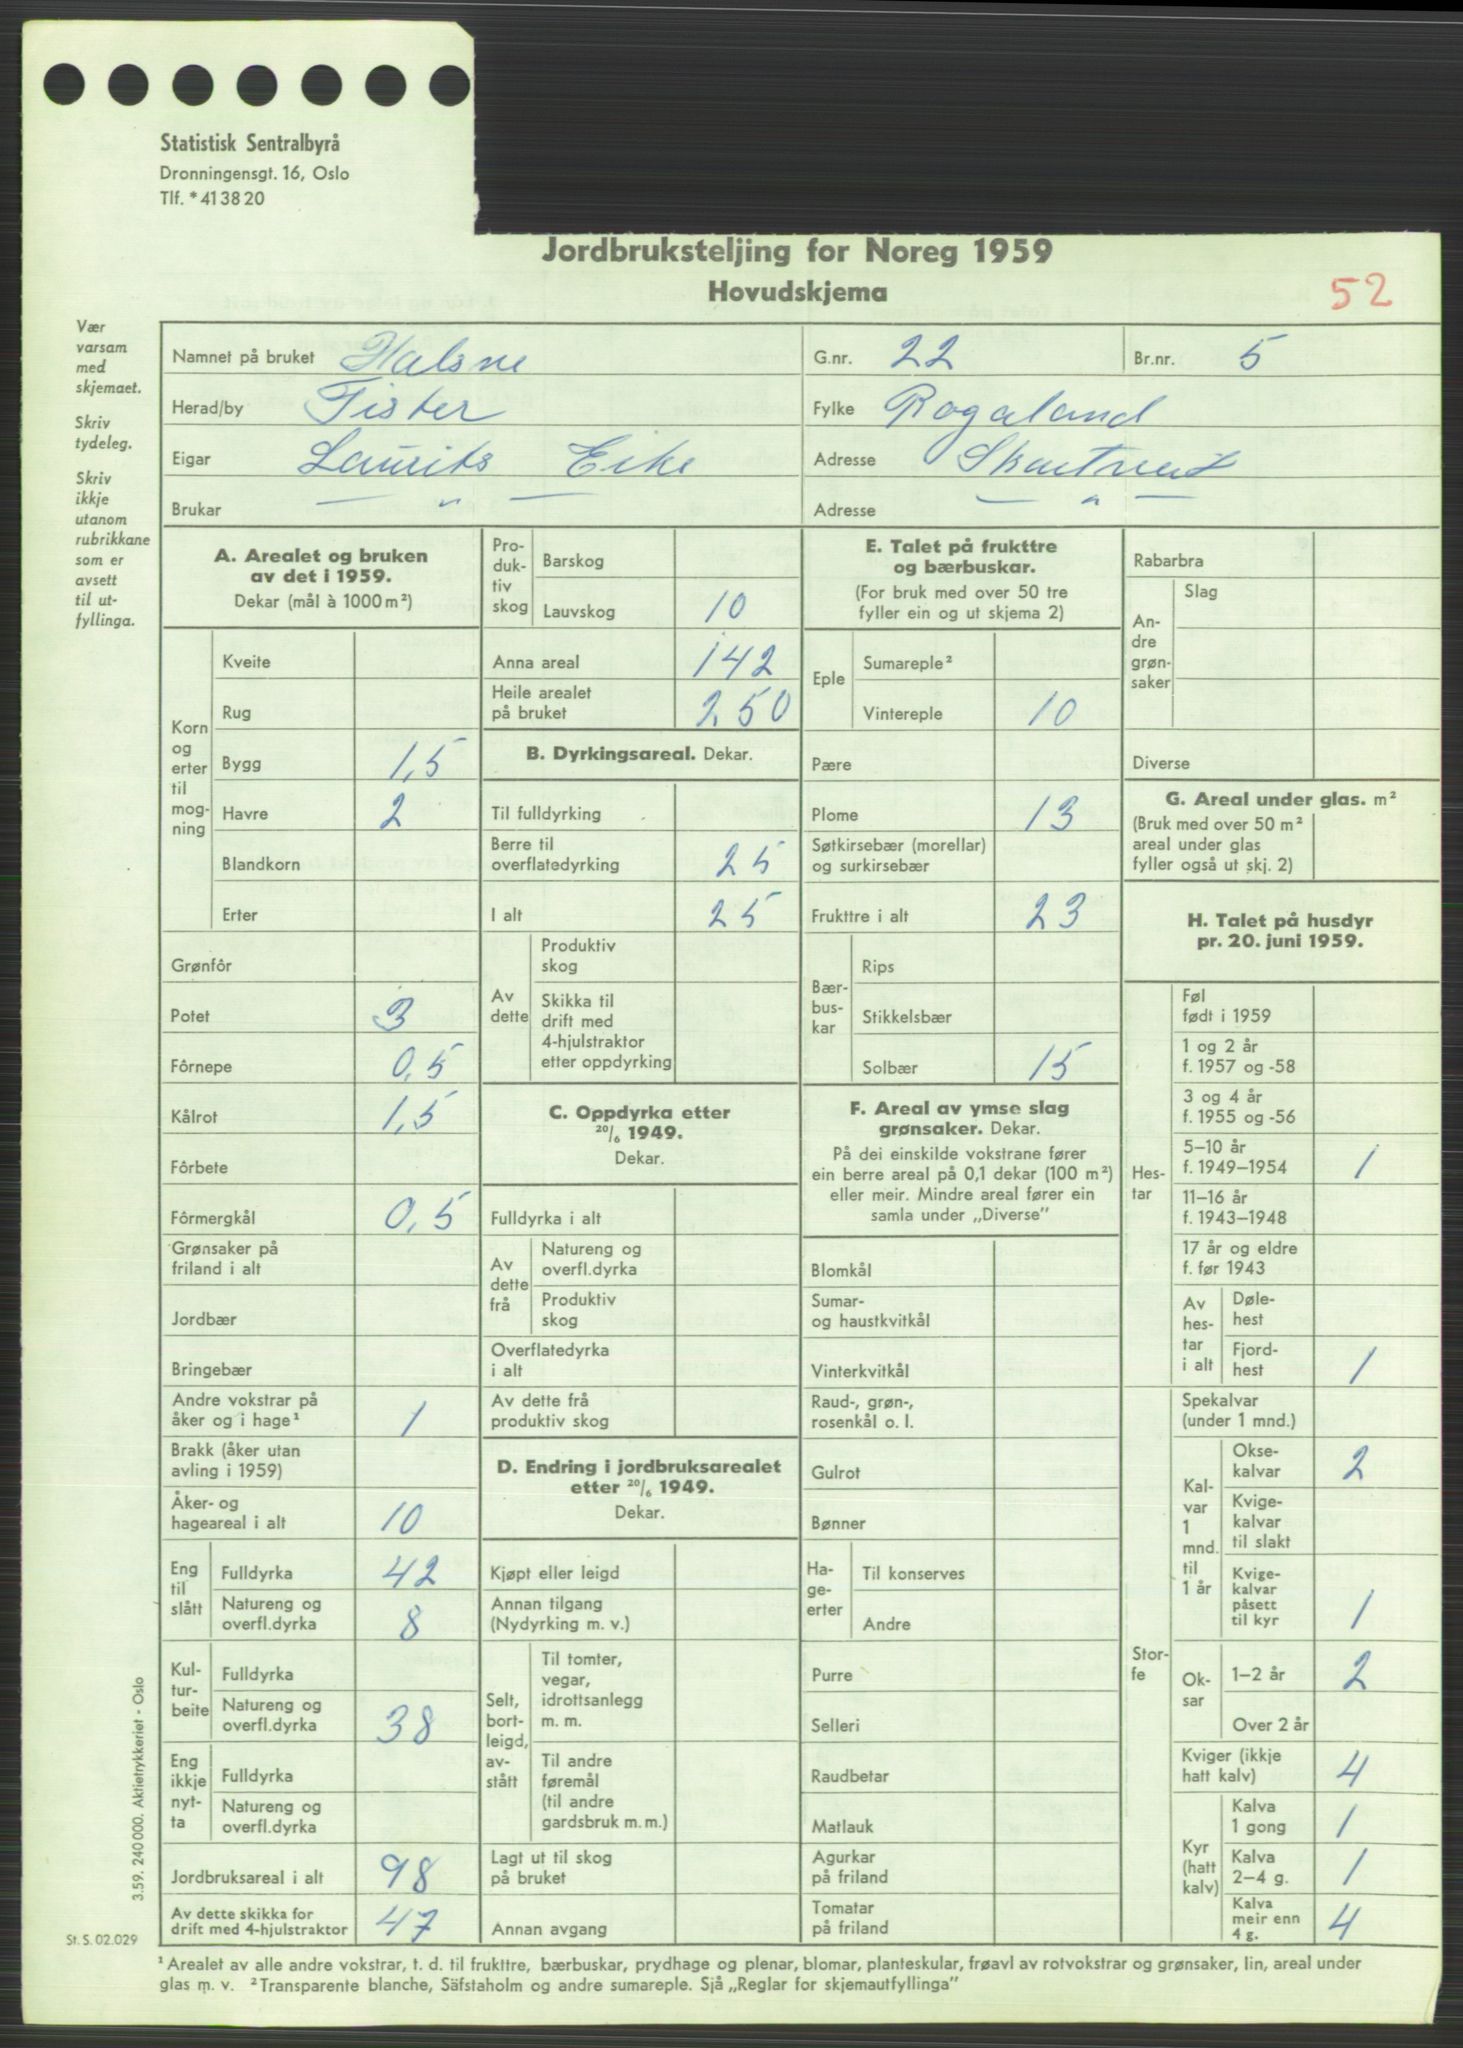 Statistisk Sentralbyrå
Dronningensgt. 16, Oslo
Tlf. *41 38 20
Jordbruksteljing for Noreg 1959
Hovudskjema
52
Vær
varsam
med
skjemaet.
Skriv
tydeleg.
Skriv
ikkje
utanom
rubrikkane
som er
avsett
til ut-
fyllinga.
Namnet på bruket Halsne
G.nr. 22
Br.nr. 5
Herad/by Fister
Fylke Rogaland
Eigar Laurits Eike
Adresse
Brukar — " —
Adresse — " —
A. Arealet og bruken
av det i 1959.
Dekar (mål à 1000 m²)
Korn
og
erter
til
mog-
ning
Kveite
Rug
Bygg 1,5
Havre 2
Blandkorn
Erter
Grønfôr
Potet 3
Fôrnepe 0,5
Kålrot 1,5
Fôrbete
Fôrmergkål 0,5
Grønsaker på
friland i alt
Jordbær
Bringebær
Andre vokstrar på
åker og i hage¹ 1
Brakk (åker utan
avling i 1959)
Åker- og
hageareal i alt 10
Eng
til
slått
Fulldyrka 42
Natureng og
overfl.dyrka 8
Kul-
tur-
beite
Fulldyrka
Natureng og
overfl.dyrka 38
Eng
ikkje
nyt-
ta
Fulldyrka
Natureng og
overfl.dyrka
Jordbruksareal i alt 98
Av dette skikka for
drift med 4-hjulstraktor 47
Pro-
duk-
tiv
skog
Barskog
Lauvskog 10
Anna areal 142
Heile arealet
på bruket 250
B. Dyrkingsareal. Dekar.
Til fulldyrking
Berre til
overflatedyrking 25
I alt 25
Av
dette
Produktiv
skog
Skikka til
drift med
4-hjulstraktor
etter oppdyrking
C. Oppdyrka etter
20/6 1949.
Dekar.
Fulldyrka i alt
Av
dette
frå
Natureng og
overfl.dyrka
Produktiv
skog
Overflatedyrka
i alt
Av dette frå
produktiv skog
D. Endring i jordbruksarealet
etter 20/6 1949.
Dekar.
Kjøpt eller leigd
Annan tilgang
(Nydyrking m. v.)
Selt,
bort-
leigd,
av-
stått
Til tomter,
vegar,
idrottsanlegg
m. m.
Til andre
føremål
(til andre
gardsbruk m. m.)
Lagt ut til skog
på bruket
Annan avgang
E. Talet på frukttre
og bærbuskar.
(For bruk med over 50 tre
fyller ein og ut skjema 2)
Eple
Sumareple²
Vintereple 10
Pære
Plome 13
Søtkirsebær (morellar)
og surkirsebær
Frukttre i alt 23
Bær-
bus-
kar
Rips
Stikkelsbær
Solbær 15
F. Areal av ymse slag
grønsaker. Dekar.
På dei einskilde vokstrane fører
ein berre areal på 0,1 dekar (100 m²)
eller meir. Mindre areal fører ein
samla under „Diverse”
Blomkål
Sumar-
og haustkvitkål
Vinterkvitkål
Raud-, grøn-,
rosenkål o. l.
Gulrot
Bønner
Ha-
ge-
erter
Til konserves
Andre
Purre
Selleri
Raudbetar
Matlauk
Agurkar
på friland
Tomatar
på friland
Rabarbra
An-
dre
grøn-
saker
Slag
Diverse
G. Areal under glas. m²
(Bruk med over 50 m²
areal under glas
fyller også ut skj. 2)
H. Talet på husdyr
pr. 20. juni 1959.
Hes-
tar
Føl
født i 1959
1 og 2 år
f. 1957 og -58
3 og 4 år
f. 1955 og -56
5–10 år
f. 1949–1954 1
11–16 år
f. 1943–1948
17 år og eldre
f. før 1943
Av
hes-
tar
i alt
Døle-
hest
Fjord-
hest 1
Stor-
fe
Spekalvar
(under 1 mnd.)
Kal-
var
1
mnd.
til
1 år
Okse-
kalvar 2
Kvige-
kalvar
til slakt
Kvige-
kalvar
påsett
til kyr 1
Ok-
sar
1–2 år 2
Over 2 år
Kviger (ikkje
hatt kalv) 4
Kyr
(hatt
kalv)
Kalva
1 gong 1
Kalva
2–4 g. 1
Kalva
meir enn
4 g. 4
3.59. 240 000. Aktietrykkeriet - Oslo
St. S. 02.029
¹ Arealet av alle andre vokstrar, t. d. til frukttre, bærbuskar, prydhage og plenar, blomar, planteskular, frøavl av rotvokstrar og grønsaker, lin, areal under
glas m. v. ² Transparente blanche, Säfstaholm og andre sumareple. Sjå „Reglar for skjemautfyllinga”